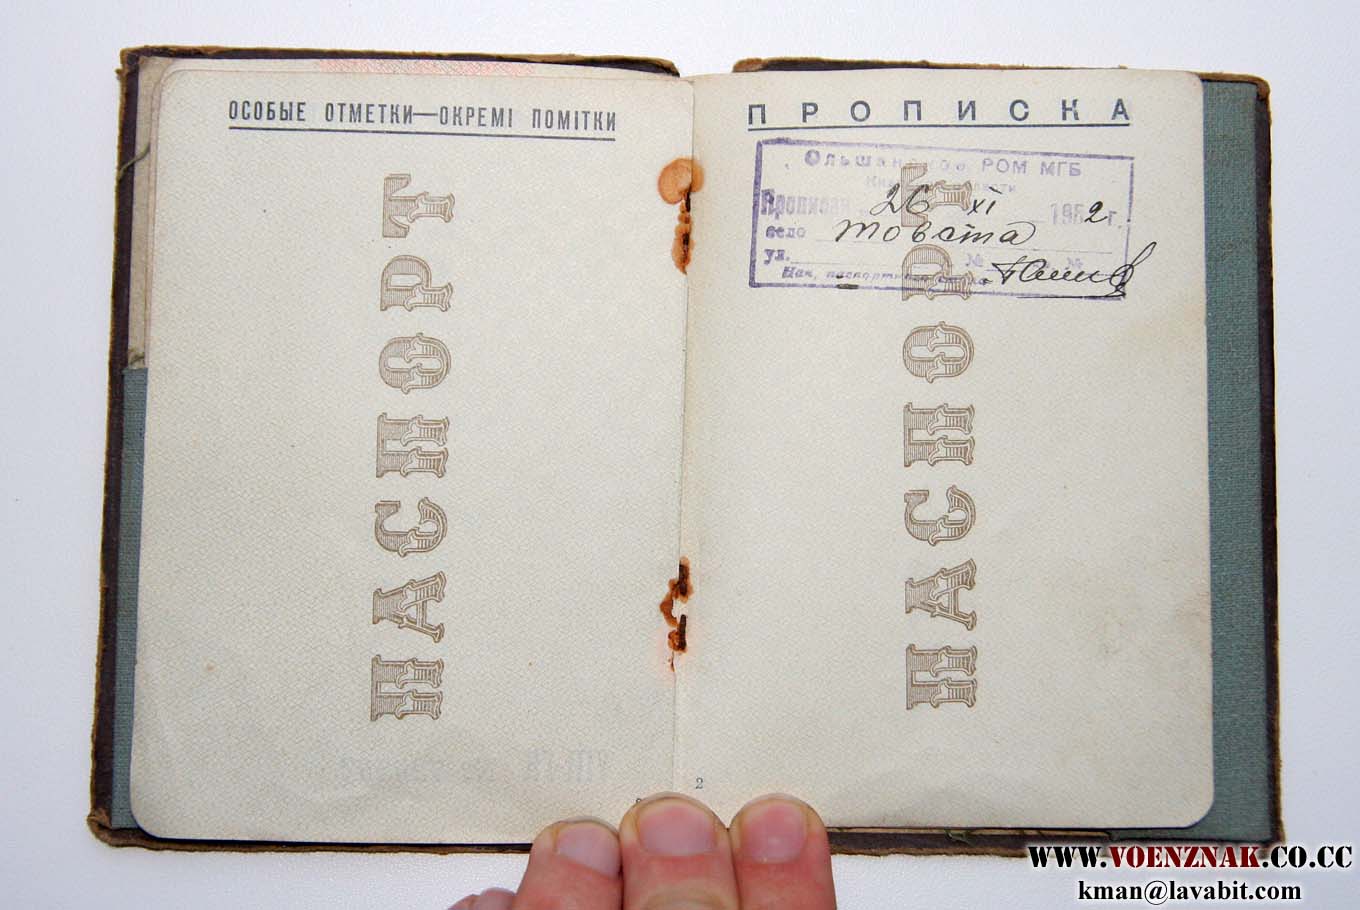 ОСОБЫЕ ОТМЕТКИ—ОКРЕМІ ПОМІТКИ
ПАСПОРТ
2
ПРОПИСКА
РОМ МГБ
Прописан 26 XI 1952 г.
село Товста
ул. № №
Нач. паспортн
ПАСПОРТ
WWW.VOENZNAK.CO.CC
kman@lavabit.com